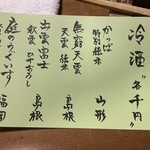 冷酒 "各千円"
かっぱ 特別純米 山形
無窮天雲 天雲 純米 島根
出雲富士 秋雲 ひやおろし 島根
庭のうぐいす 福岡